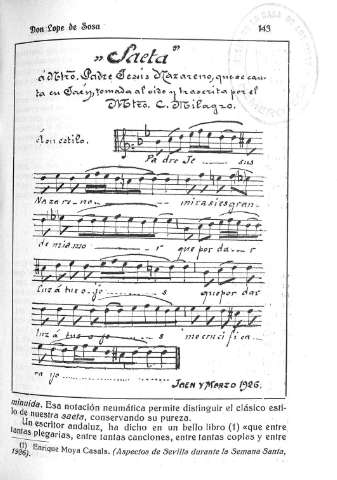 Don Lope de Sosa 143
"Saeta"
á Ntro. Padre Jesús Nazareno, que se can-
ta en Jaén, tomada al oido y trascrita por el
Mtro. C. Milagro.
Ad lib. estilo.
Pa dre Je ------ sus
Na za re - no ------ mira si es gran
de mi a mo ------ r que por da - r
luz á tus o - jo ------ s que por dar
luz á tus o - jo ------ s me cru ci fi ca
ra ja ------
JAEN Y MARZO 1926.
minuida. Esa notación neumática permite distinguir el clásico esti-
lo de nuestra saeta, conservando su pureza.
Un escritor andaluz, ha dicho en un bello libro (1) «que entre
tantas plegarias, entre tantas canciones, entre tantas coplas y entre
(1) Enrique Moya Casals. (Aspectos de Sevilla durante la Semana Santa,
1926).